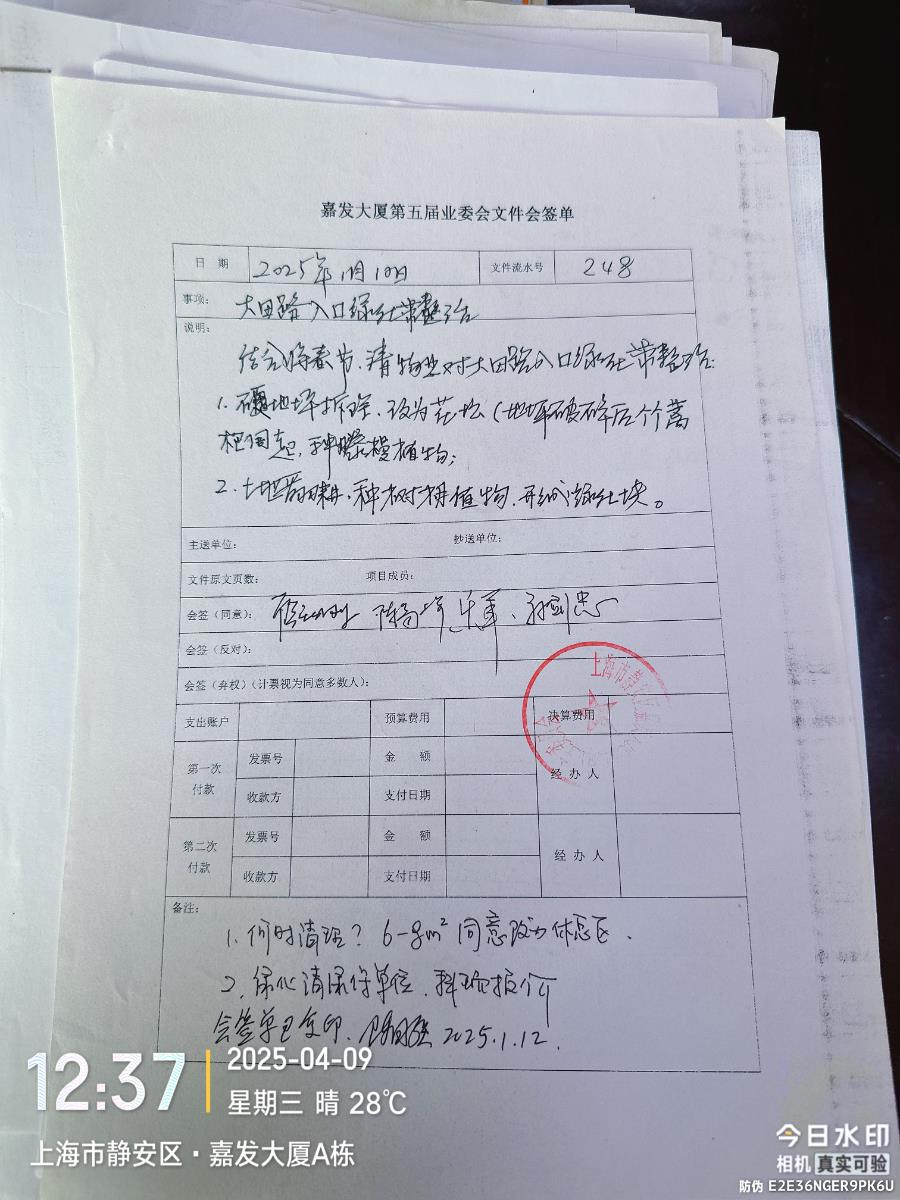 嘉发大厦第五届业委会文件会签单
日 期 2025年1月10日 文件流水号 248
事项: 大田路入口绿化带整治
说明:
结合将春节,请物业对大田路入口绿化带整治:
1. 硬地坪拆除,改为花坛(地坪破碎后个篱
笆围起,种 植物;
2. 土地翻耕,种树 植物,形成绿化块。
主送单位: 抄送单位:
文件原文页数: 项目成员:
会签(同意): 陈 军、 忠
会签(反对):
会签(弃权)(计票视为同意多数人):
上海市静安区
支出账户 预算费用 决算费用
第一次付款 发票号 金 额 经 办 人
收款方 支付日期
第二次付款 发票号 金 额 经 办 人
收款方 支付日期
备注:
1. 何时清理? 6-8m² 同意改为休息区.
2. 绿化请 单位, 报价
会签单已复印. 2025.1.12.
12:37
2025-04-09
星期三 晴 28℃
上海市静安区·嘉发大厦A栋
今日水印
相机 真实可验
防伪 E2E36NGER9PK6U